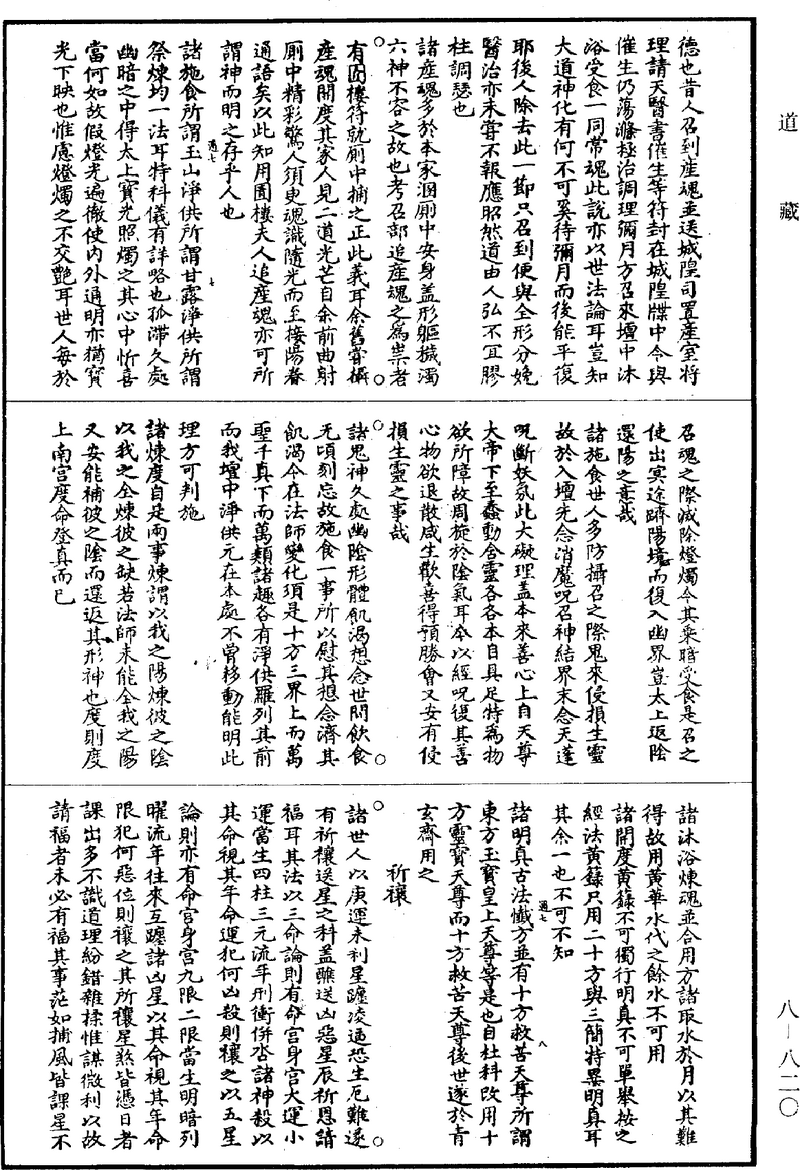 道藏
德也昔人召到産魂並送城隍司置産室將
理請天醫書催生等符封在城隍牒中令與
催生仍蕩滌極治調理彌月方召來壇中沐
浴受食一同常魂此說亦以世法論耳豈知
大道神化有何不可奚待彌月而後能平復
耶後人除去此一節只召到便與全形分娩
醫治亦未嘗不報應昭然道由人弘不冝膠
柱調瑟也
諸産魂多於本家溷厠中安身盖形軀穢濁
六神不容之故也考召部追産魂之為祟者
有圊樓符就厠中捕之正此義耳余舊嘗攝
産魂開度其家人見二道光芒自余前曲射
厠中精彩驚人須臾魂識隨光而至接陽眷
通語矣以此知用圊樓夫人追産魂亦可所
謂神而明之存乎人也
諸施食所謂玉山淨供所謂甘露淨供所謂
祭煉均一法耳特科儀有詳略也孤滯久處
幽暗之中得太上寳光照燭之其心中忻喜
當何如故假燈光遍徹使内外通明亦猶寳
光下映也惟慮燈燭之不交艷耳世人每於
召魂之際滅除燈燭令其乘暗受食是召之
使出冥途躋陽境而復入幽界豈太上返陰
還陽之意哉
諸施食世人多防攝召之際鬼來侵損生靈
故於入壇先念消魔呪召神結界末念天蓬
呪斷妖氛此大礙理盖本來善心上自天尊
大帝下至蠢動含靈各各本自具足特為物
欲所障故周旋於陰氣耳今以經呪復其善
心物欲退散咸生歡喜得預勝會又安有侵
損生靈之事哉
諸鬼神久處幽陰形體飢渴想念世間飲食
无頃刻忘故施食一事所以慰其想念濟其
飢渴今在法師變化須是十方三界上而萬
聖千真下而萬類諸趣各有淨供羅列其前
而我壇中淨供元在本處不曾移動能明此
理方可判施
諸煉度自是兩事煉謂以我之陽煉彼之陰
以我之全煉彼之缺若法師未能全我之陽
又安能補彼之陰而還返其形神也度則度
上南宮度命登真而已
諸沐浴煉魂並合用方諸取水於月以其難
得故用黄華水代之餘水不可用
諸開度黄籙不可獨行明真不可單舉按之
經法黄籙只用二十方與三簡特異明真耳
其余一也不可不知
諸明真古法懺方並有十方救苦天尊所謂
東方玉寳皇上天尊等是也自杜科改用十
方靈寳天尊而十方救苦天尊後世遂於青
玄齋用之
祈禳
諸世人以庚運未利星躔凌逼恐生厄難遂
有祈禳送星之科盖醮送凶惡星辰祈恩請
福耳其法以三命論則有命宮身宮大運小
運當生四柱三元流年刑衝併呇諸神殺以
其命視其年命運犯何凶殺則禳之以五星
論則亦有命宮身宮九限二限當生明暗列
曜流年往來互躔諸凶星以其命視其年命
限犯何惡位則禳之其所禳星煞皆憑日者
課出多不識道理紛錯雜揉惟謀微利以故
請福者未必有福其事茫如捕風皆課星不
八－八二〇